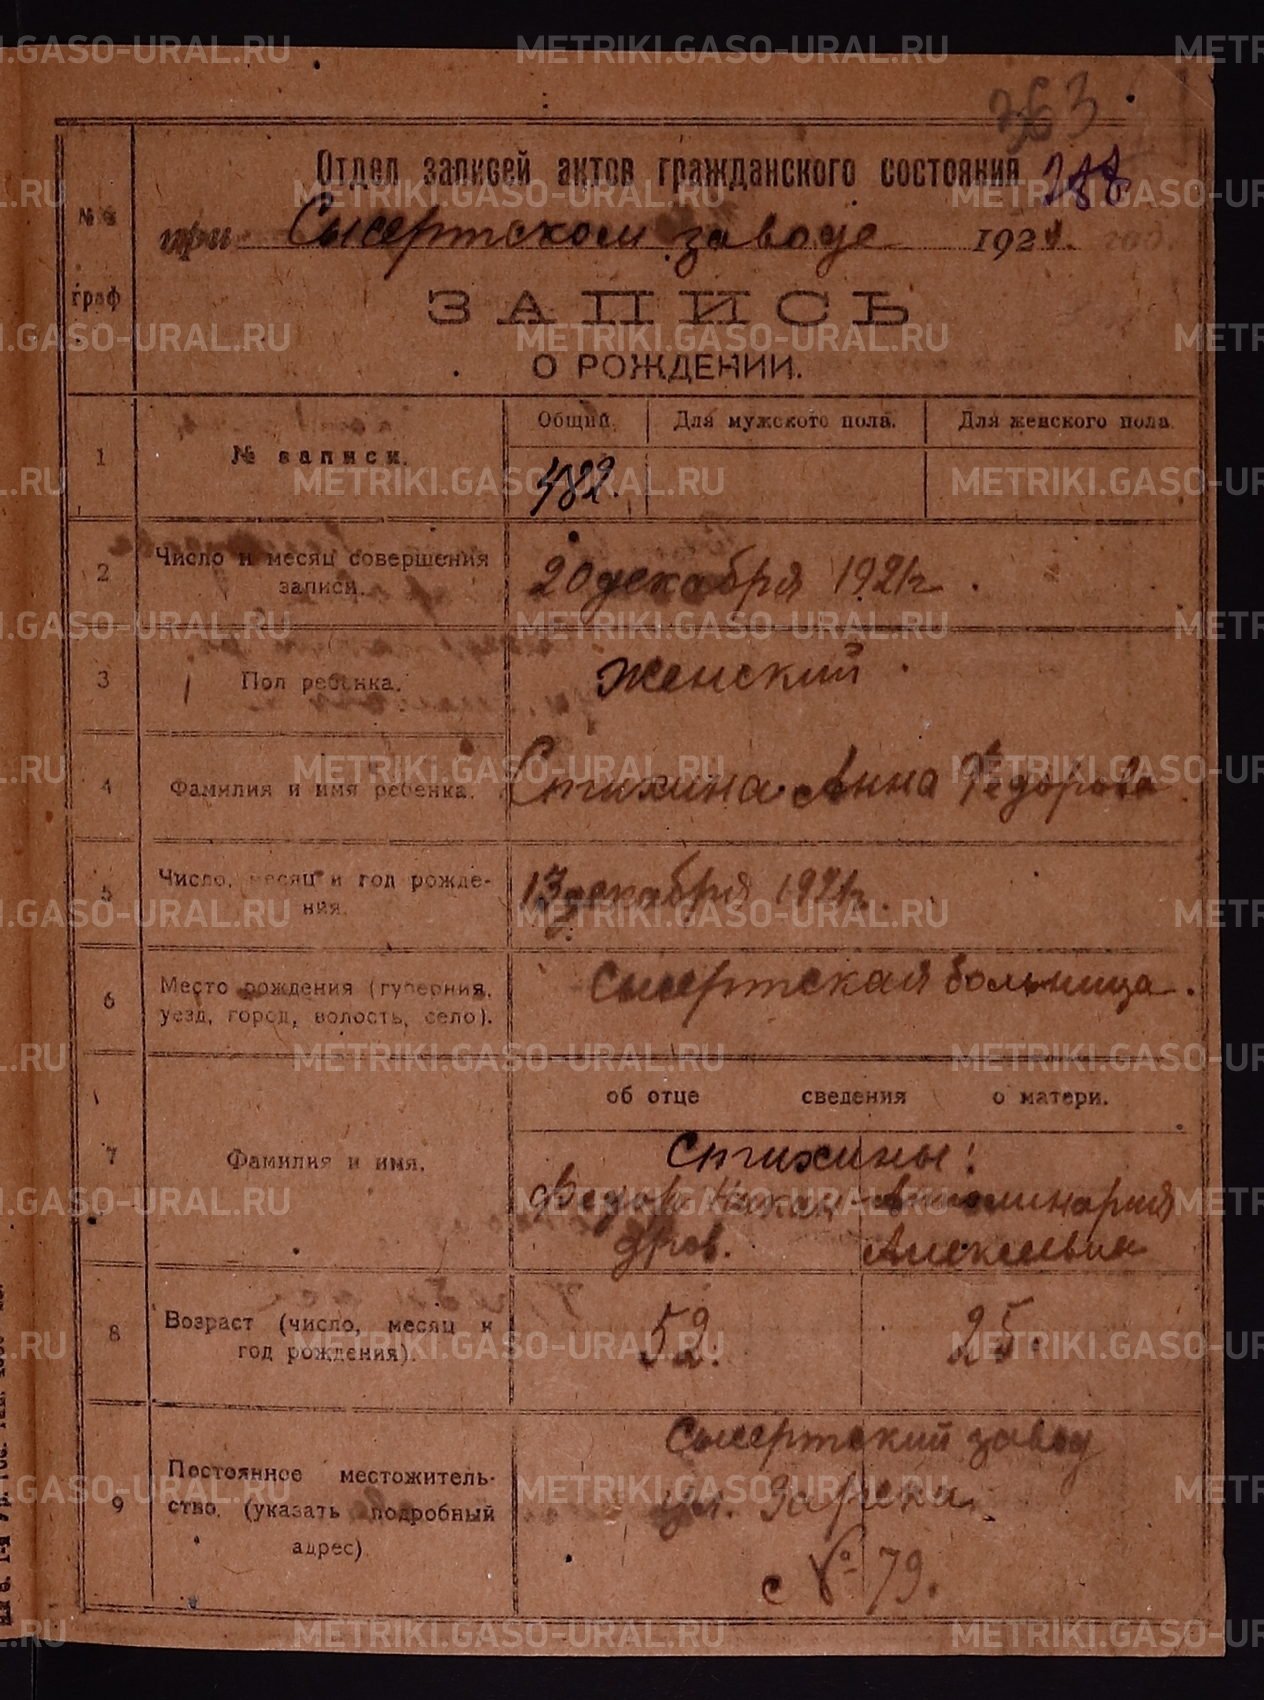 363
Отдел записей актов гражданского состояния 288
при Сысертском заводе 1921 год.
№№ граф
ЗАПИСЬ
О РОЖДЕНИИ.
1 № записи. Общий. Для мужского пола. Для женского пола.
482.
2 Число и месяц совершения записи. 20 декабря 1921 г.
3 Пол ребенка. Женский.
4 Фамилия и имя ребенка. Стихина Анна Федорова
5 Число, месяц и год рожде-
ния. 13 декабря 1921 г.
6 Место рождения (губерния, Сысертская больница.
уезд, город, волость, село).
об отце сведения о матери.
7 Фамилия и имя. Стихины:
Федор Апполинария
дров. Алексеевна
8 Возраст (число, месяц и 52. 25.
год рождения).
9 Постоянное местожитель-
ство, (указать подробный
адрес)
Сысертский завод
ул. Зарека
№ 79.
METRIKI.GASO-URAL.RU